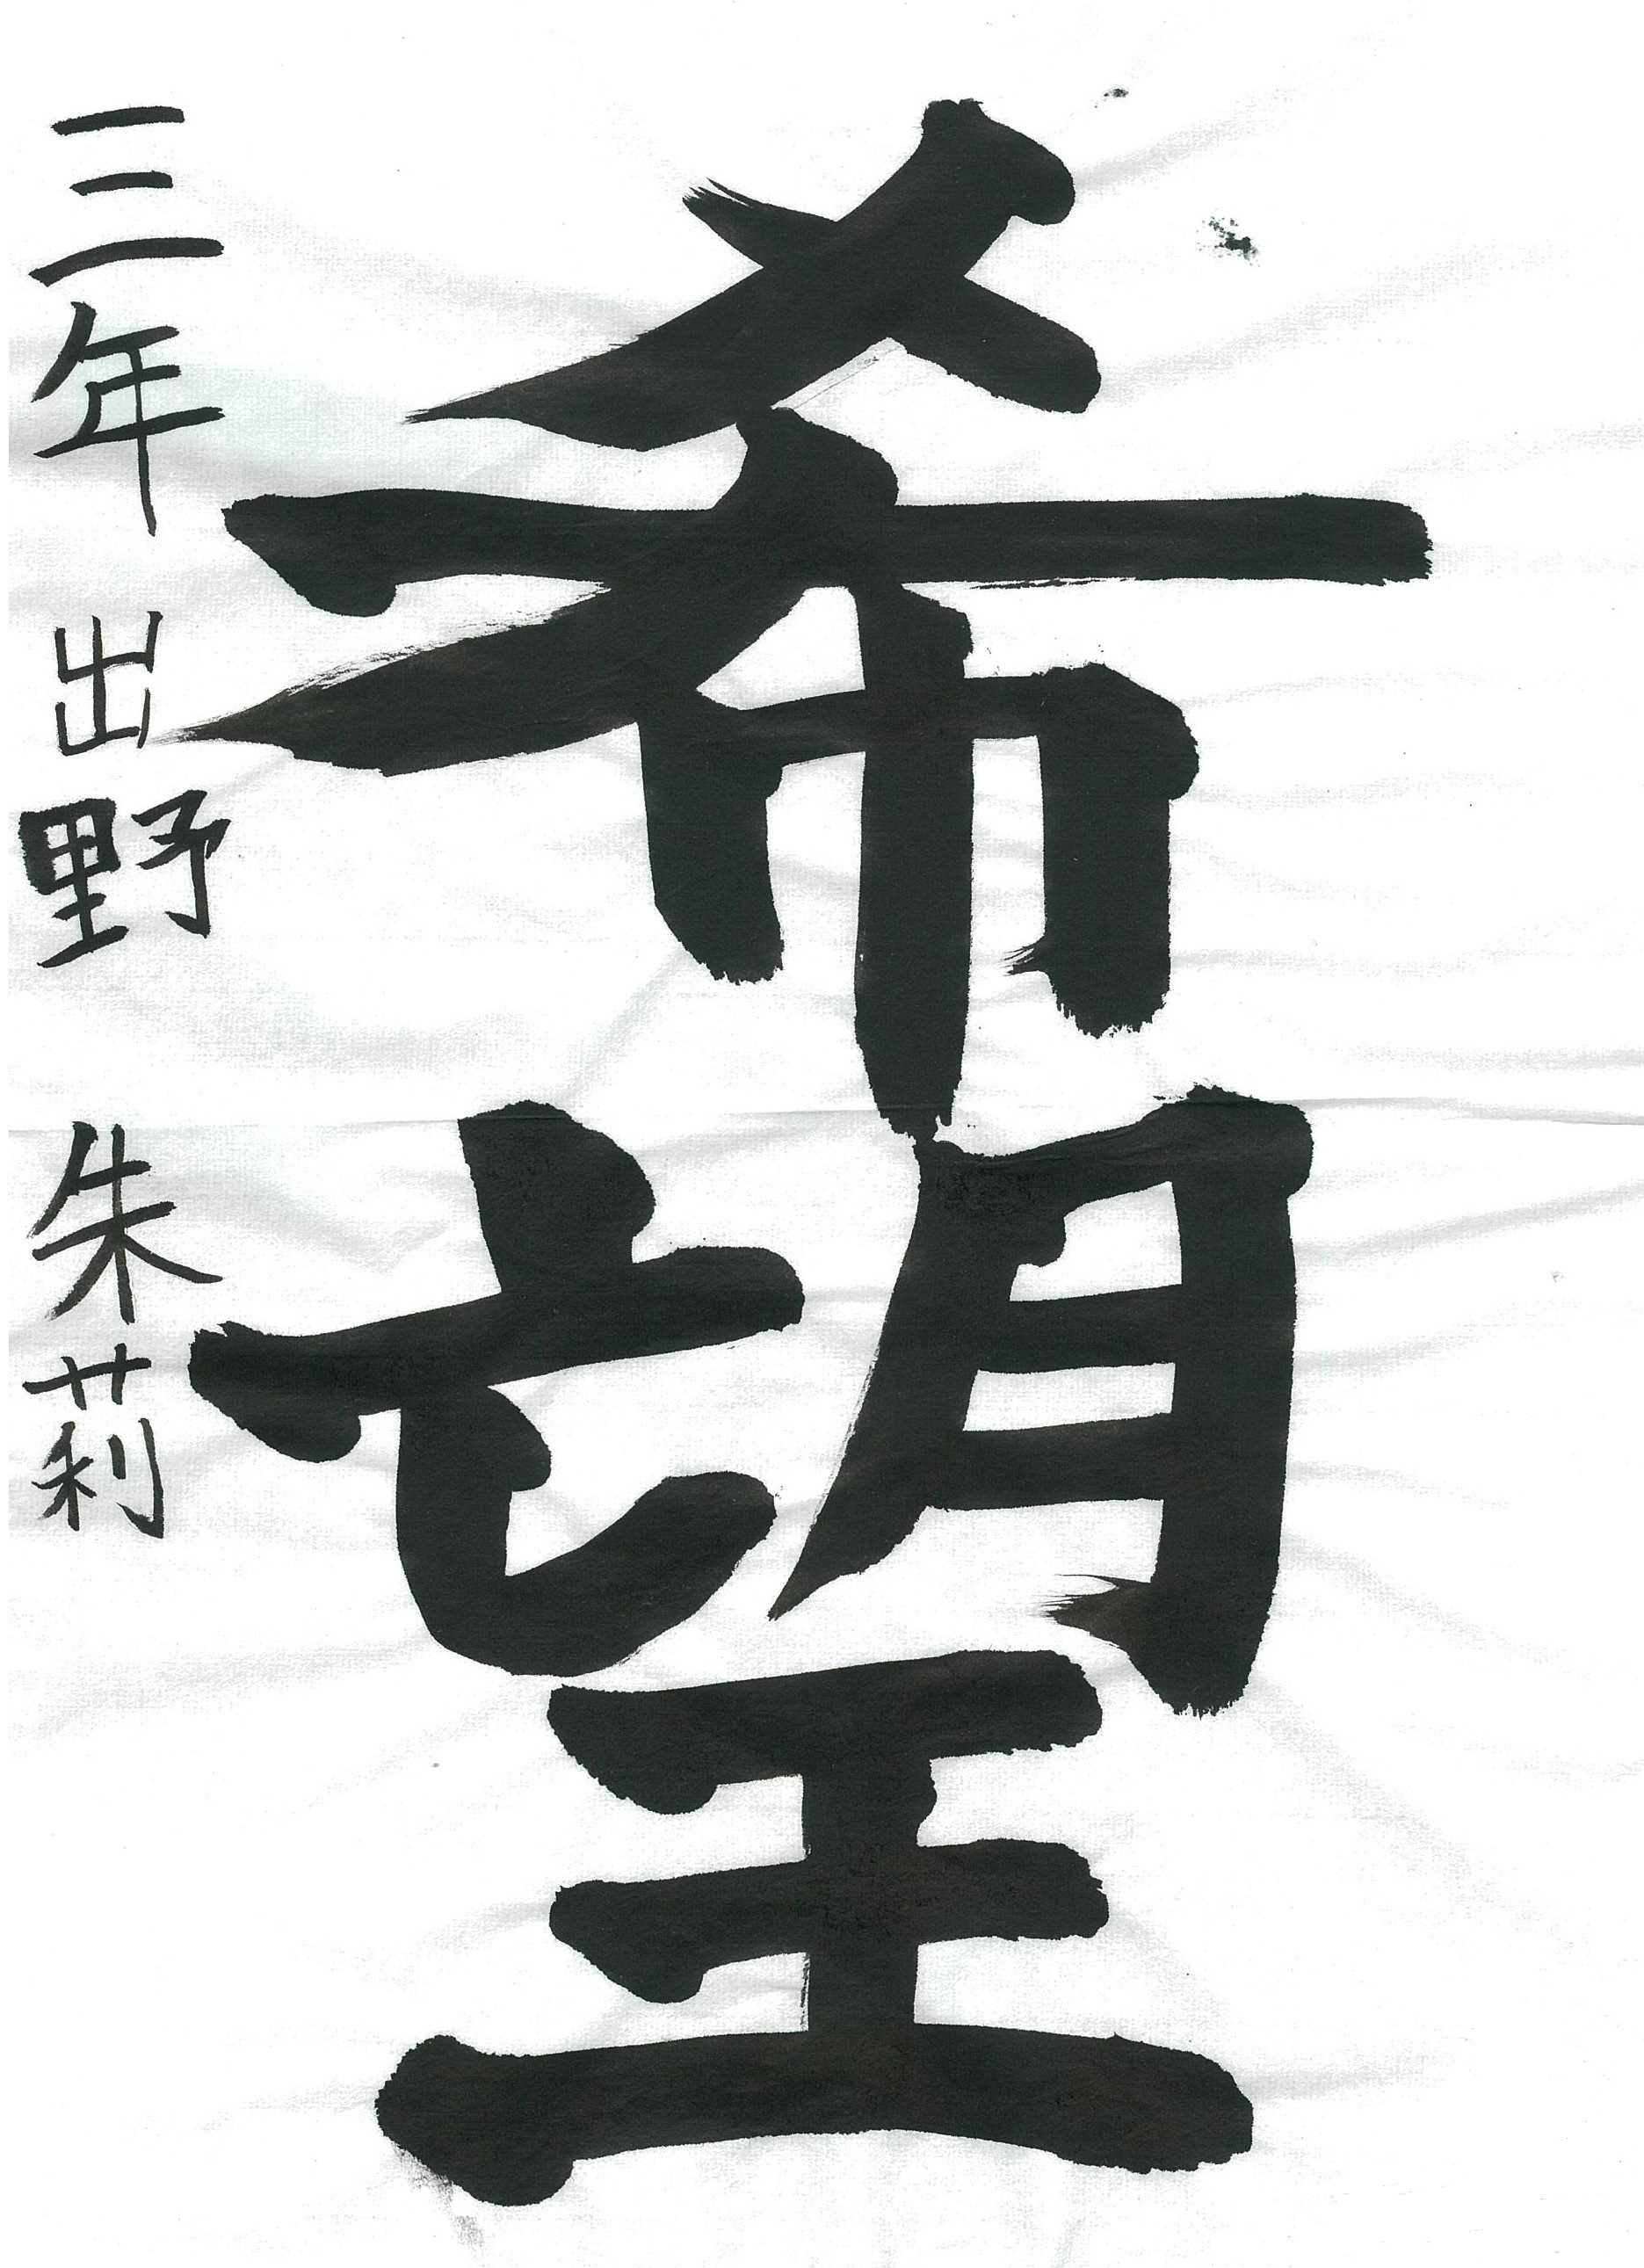 希望
三年 出野 朱莉